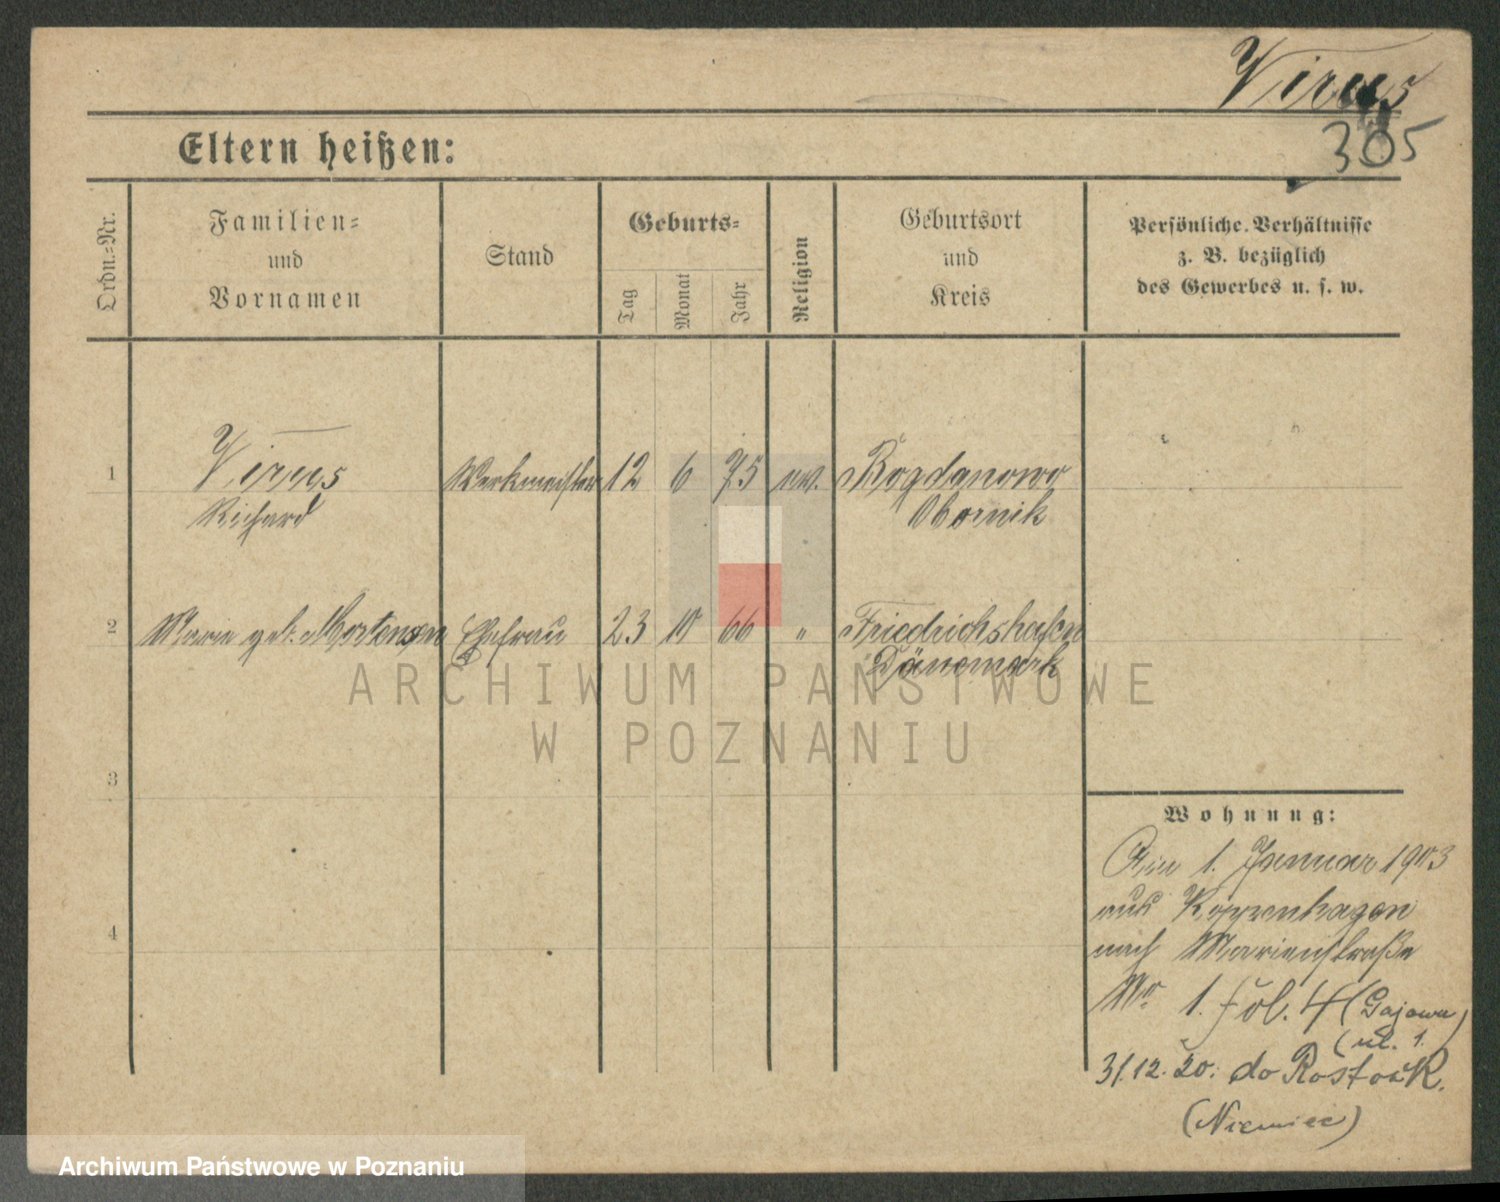 Virus
305
Eltern heißen:
Ordn.=Nr.
Familien=
und
Vornamen
Stand
Geburts=
Tag
Monat
Jahr
Religion
Geburtsort
und
Kreis
Persönliche Verhältnisse
z. B. bezüglich
des Gewerbes u. s. w.
1 Virus Werkmeister 12 6 75 ev. Bogdanowo
Richard Obornik
2 Marie geb. Mortensen Ehefrau 23 10 66 " Friedrichshafen
Dänemark
3
4
Wohnung:
Am 1. Januar 1903
aus Koppenhagen
nach Marienstraße
No 1. fol. 4 (Gajowa)
(ul. 1.
31.12.20. do Rostock.
(Niemiec)
ARCHIWUM PAŃSTWOWE
W POZNANIU
Archiwum Państwowe w Poznaniu